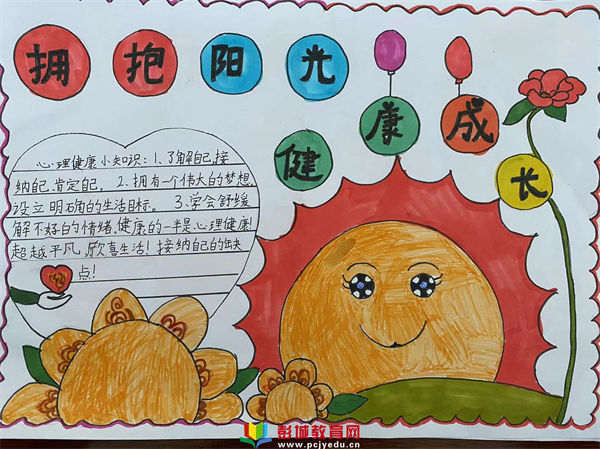 拥抱阳光
健康成长
心理健康小知识:1、了解自己,接
纳自己、肯定自己。 2、拥有一个伟大的梦想,
设立明确的生活目标。 3、学会舒缓
解不好的情绪,健康的一半是心理健康!
超越平凡,欣喜生活!接纳自己的缺
点!
心
彭城教育网
www.pcjyedu.cn